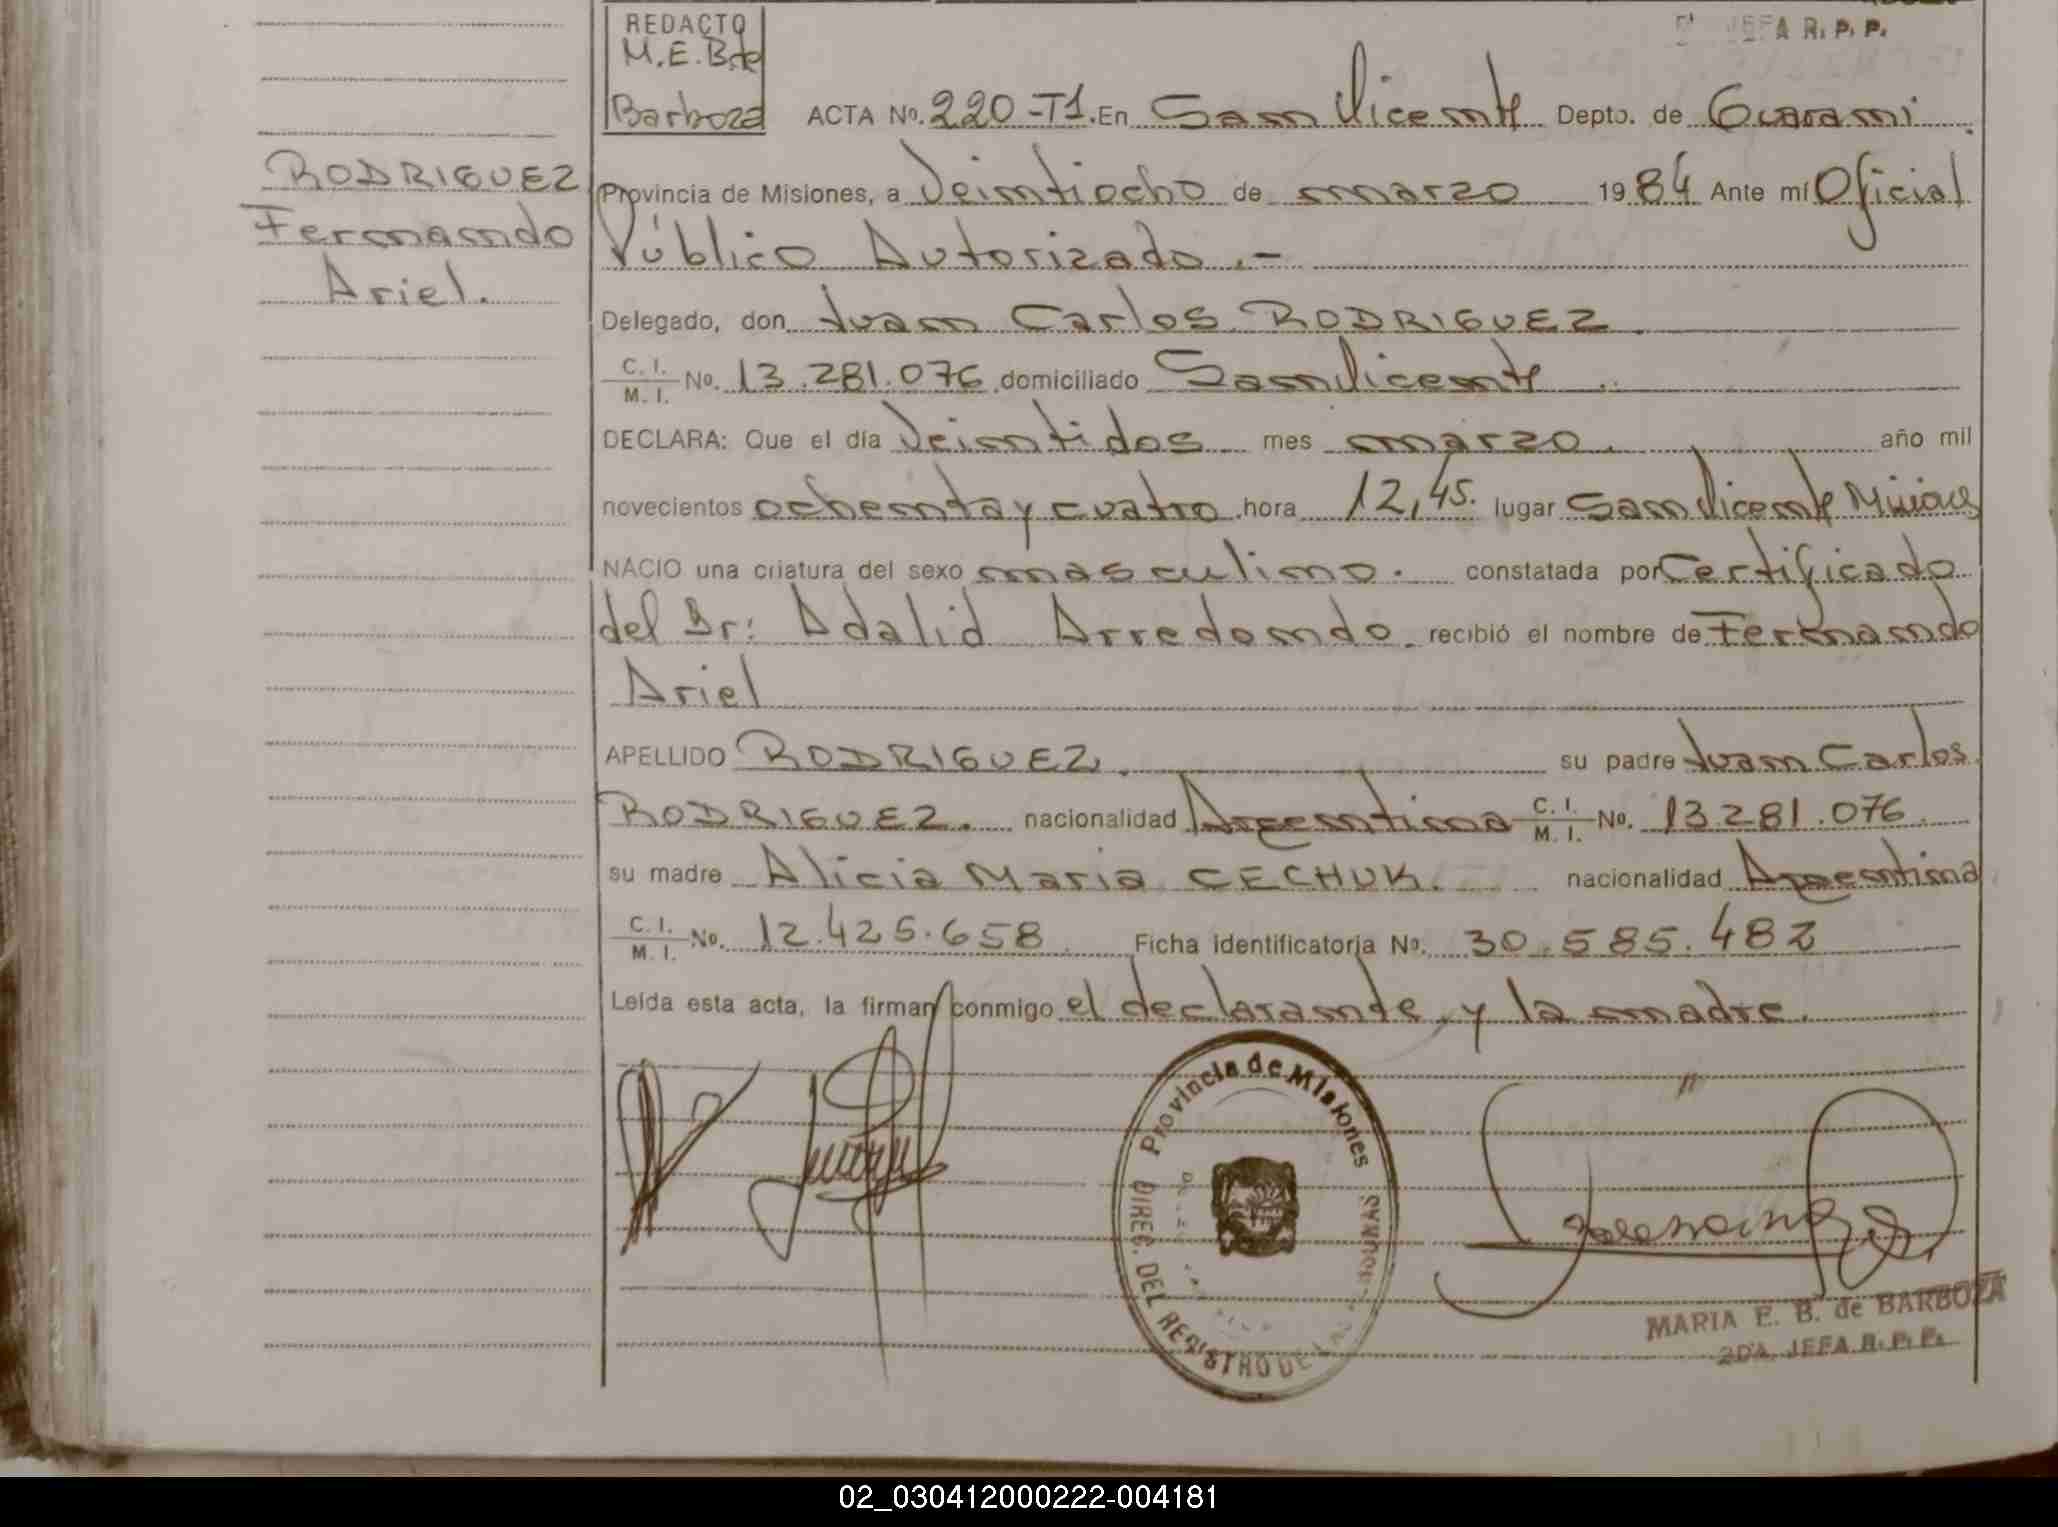 REDACTO
M.E.B.de
Barboza
JEFA R. P. P.
ACTA No. 220-T1. En San Vicente Depto. de Guarani
RODRIGUEZ
Fernando
Ariel.
Provincia de Misiones, a Veintiocho de marzo 1984 Ante mí Oficial
Público Autorizado.-
Delegado, don Juan Carlos RODRIGUEZ
C. I. / M. I. No. 13.281.076 domiciliado San Vicente
DECLARA: Que el día Veintidos mes marzo. año mil
novecientos ochenta y cuatro hora 12,45. lugar San Vicente Misiones
NACIO una criatura del sexo masculino. constatada por Certificado
del Dr: Adalid Arredondo. recibió el nombre de Fernando
Ariel
APELLIDO RODRIGUEZ. su padre Juan Carlos
RODRIGUEZ. nacionalidad Argentina C. I. / M. I. No. 13.281.076.
su madre Alicia Maria CECHUK. nacionalidad Argentina
C. I. / M. I. No. 12.425.658 Ficha identificatoria No. 30.585.482
Leída esta acta, la firman conmigo el declarante y la madre.
Provincia de Misiones
DIREC. DEL REGISTRO DE LAS PERSONAS
MARIA E. B. de BARBOZA
2DA. JEFA R. P. P.
02_030412000222-004181